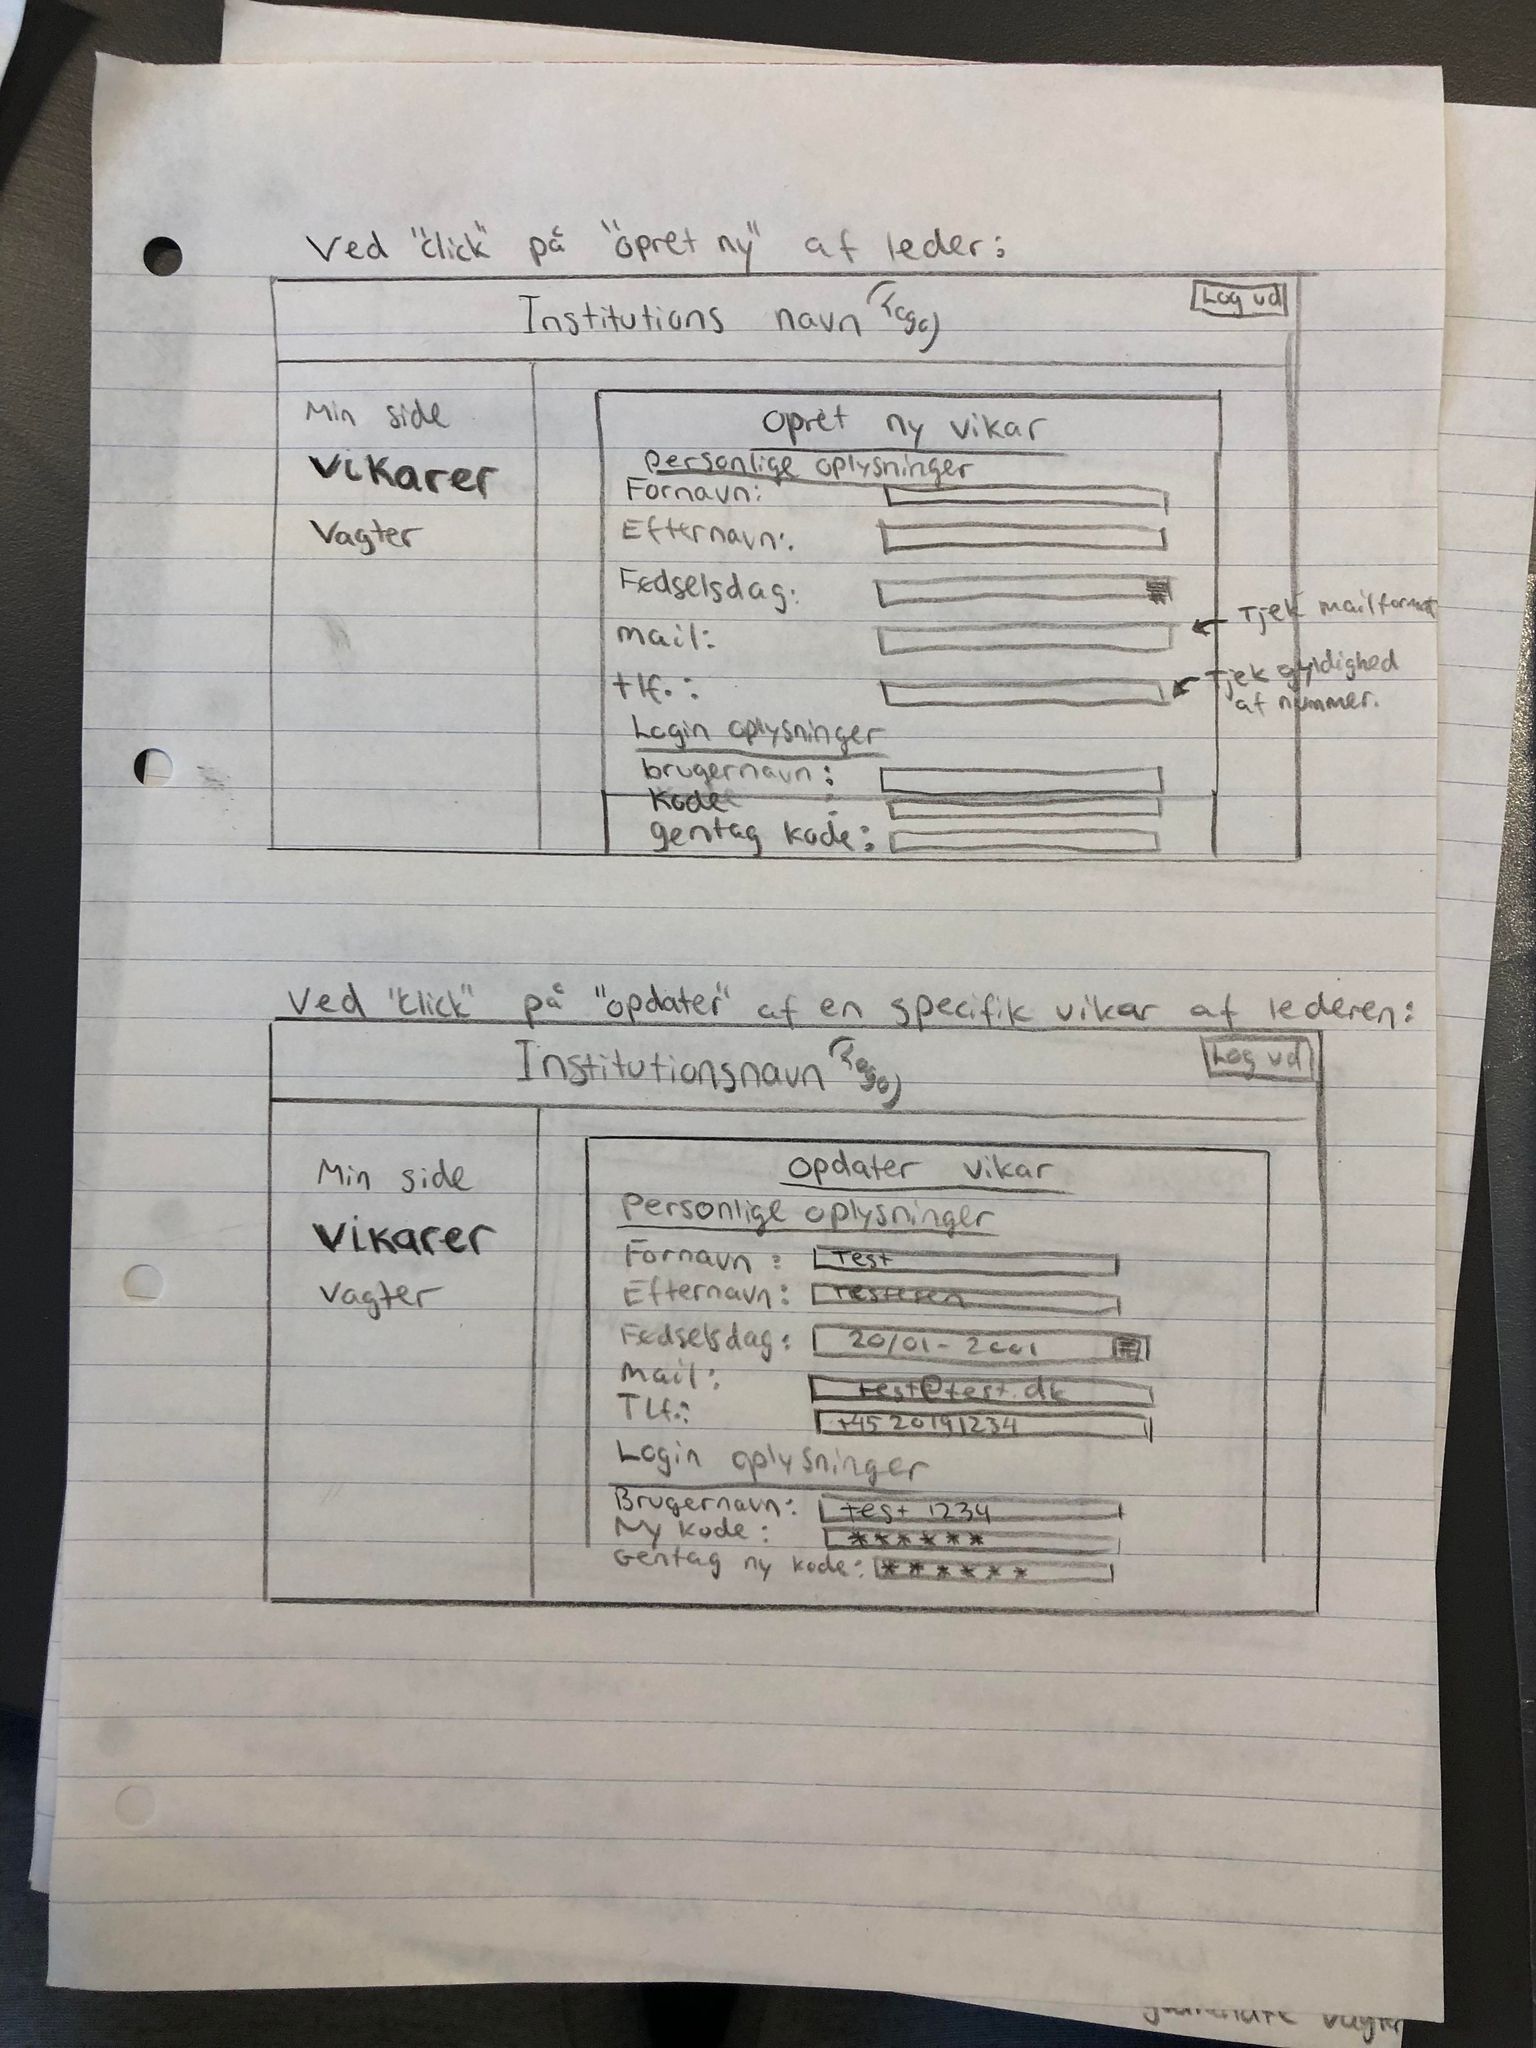 Ved "click" på "opret ny" af leder:
Institutions navn (Logo)
Log ud
Min side
Vikarer
Vagter
Opret ny vikar
Personlige oplysninger
Fornavn:
Efternavn:
Fødselsdag:
mail:
Tjek mailformat
tlf.:
Tjek gyldighed
af nummer.
Login oplysninger
brugernavn:
Kode :
gentag kode:
Ved "click" på "opdater" af en specifik vikar af lederen:
Institutionsnavn (Logo)
Log ud
Min side
Vikarer
Vagter
Opdater vikar
Personlige oplysninger
Fornavn : Test
Efternavn: Testeren
Fødselsdag: 20/01-2001
Mail: test@test.dk
Tlf.: +45 20191234
Login oplysninger
Brugernavn: test 1234
Ny kode: ******
Gentag ny kode: ******
vagter